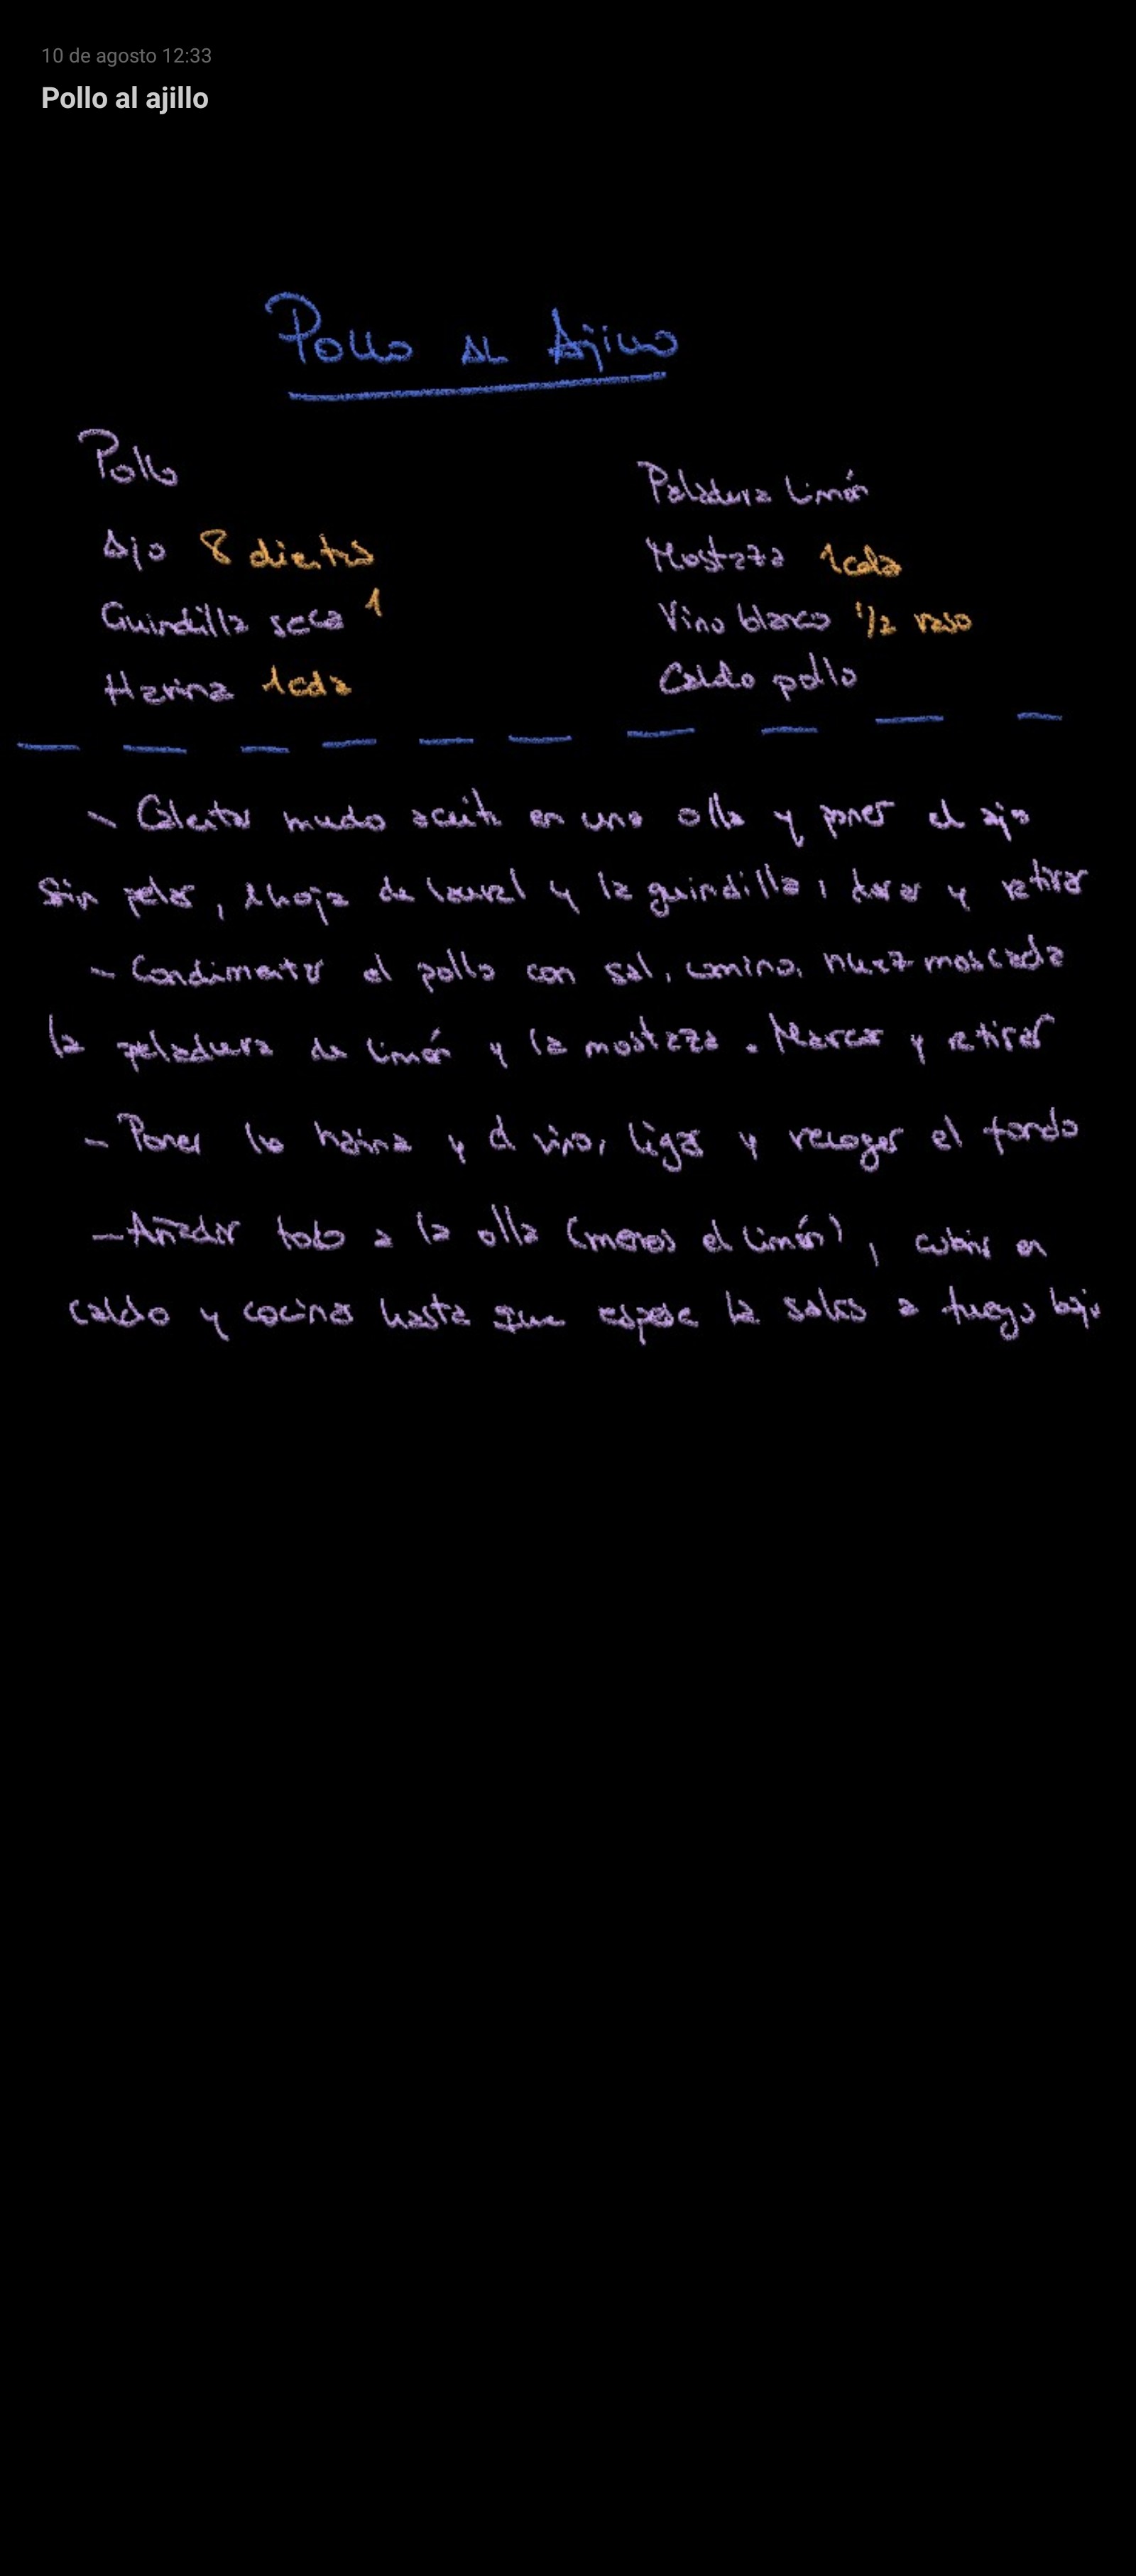 10 de agosto 12:33
Pollo al ajillo
Pollo al Ajillo
Pollo
Peladura Limón
Ajo 8 dientes
Mostaza 1cda
Guindilla seca 1
Vino blanco 1/2 vaso
Harina 1cda
Caldo pollo
- Calentar mucho aceite en una olla y poner el ajo
sin pelar, 1 hoja de laurel y la guindilla, dorar y retirar
- Condimentar el pollo con sal, comino, nuez moscada
la peladura de limón y la mostaza. Marcar y retirar
- Poner la harina y el vino, ligar y recoger el fondo
- Añadir todo a la olla (menos el limón), cubrir en
caldo y cocinar hasta que espese la salsa a fuego bajo